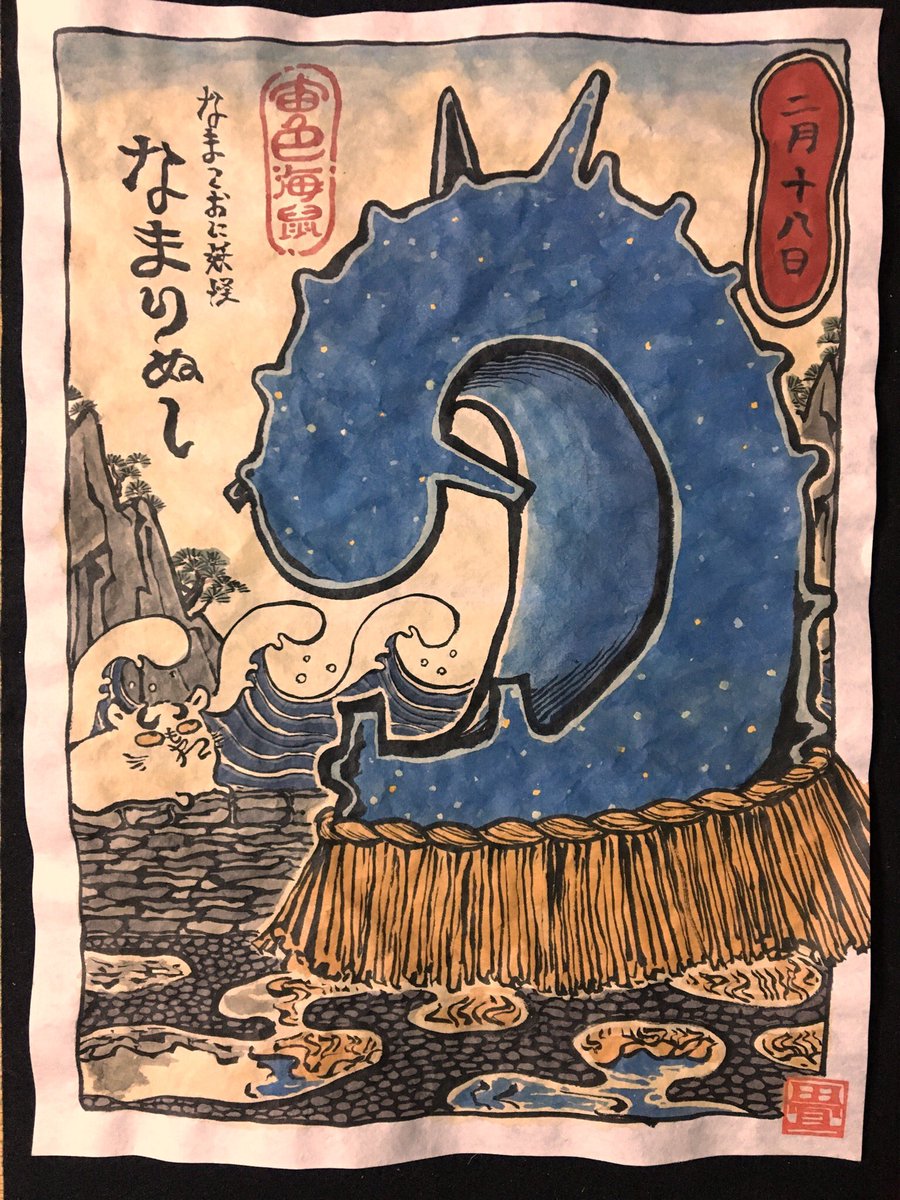 二月十八日
宙色海鼠
なまこおに妖怪
なまりぬし
畳